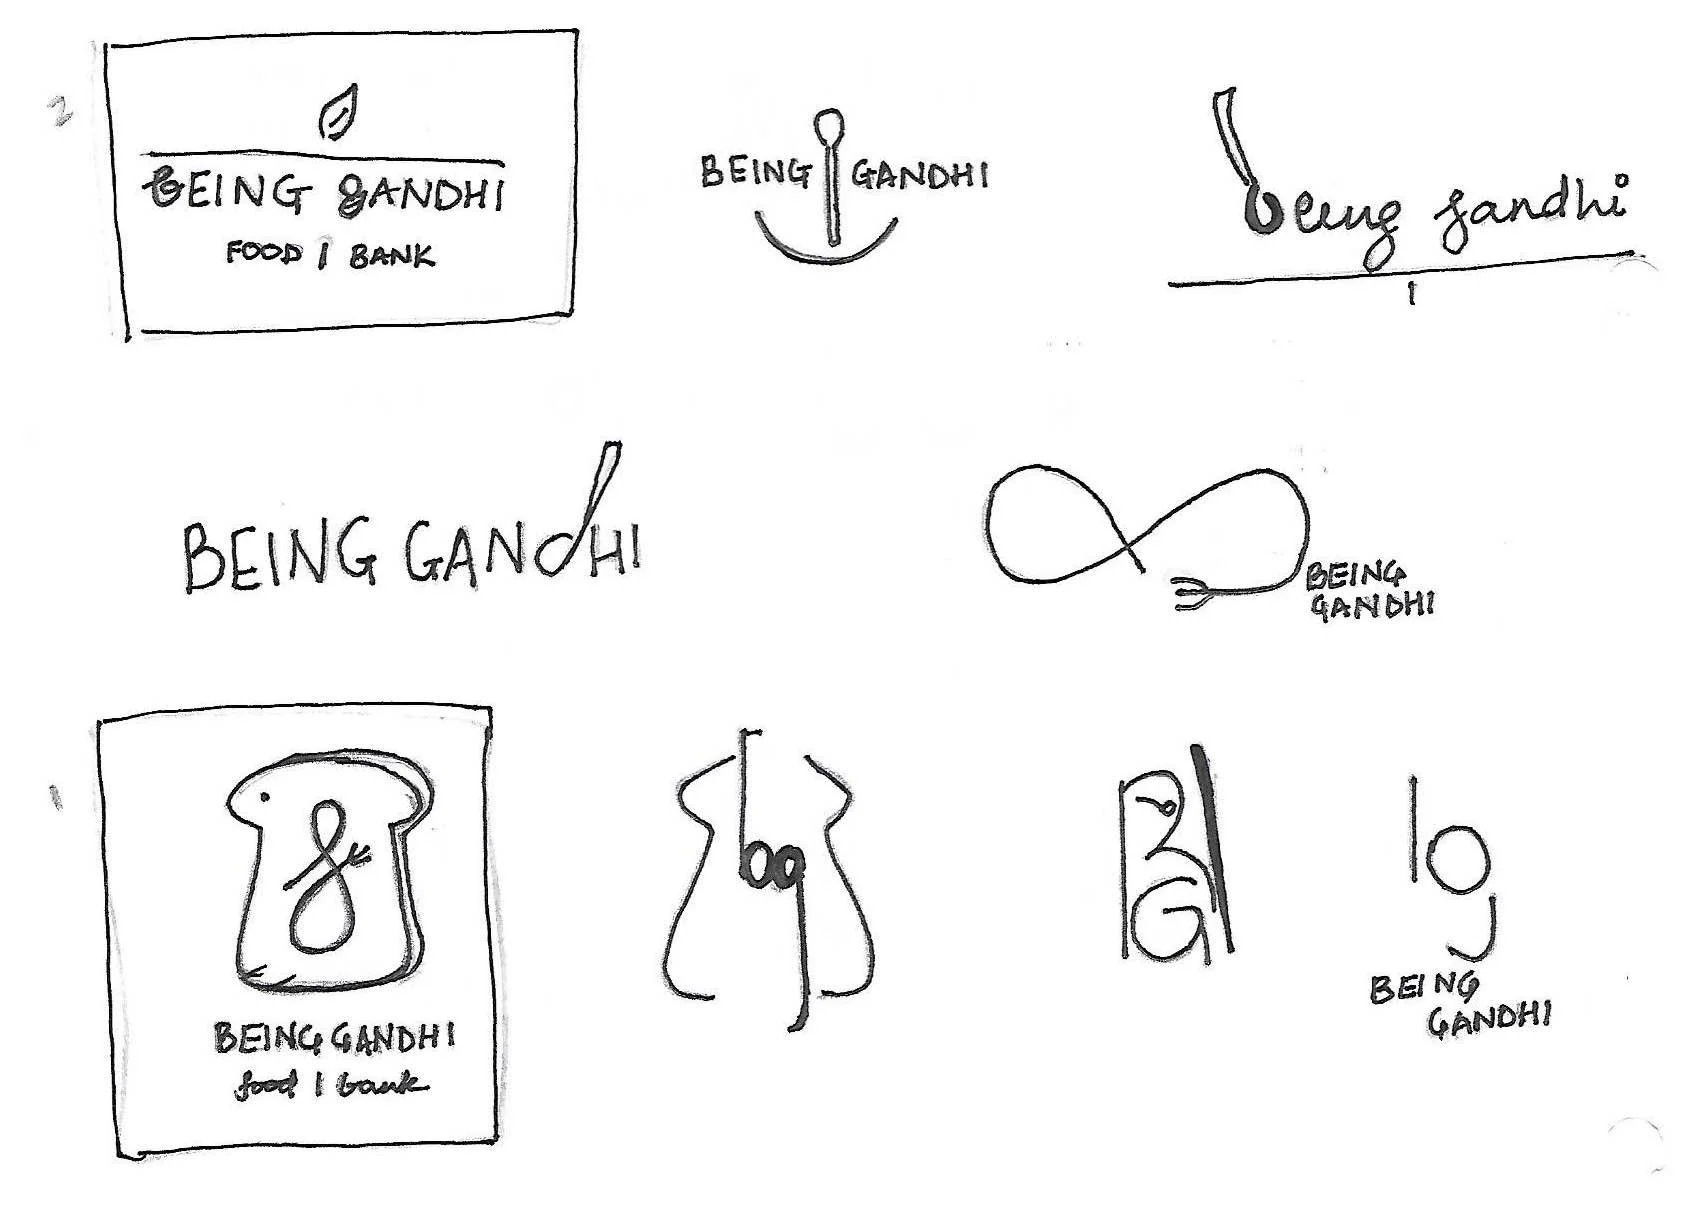 2
BEING GANDHI
FOOD | BANK
BEING GANDHI
being gandhi
BEING GANDHI
BEING
GANDHI
1
BEING GANDHI
food | bank
bg
BG
bg
BEING
GANDHI